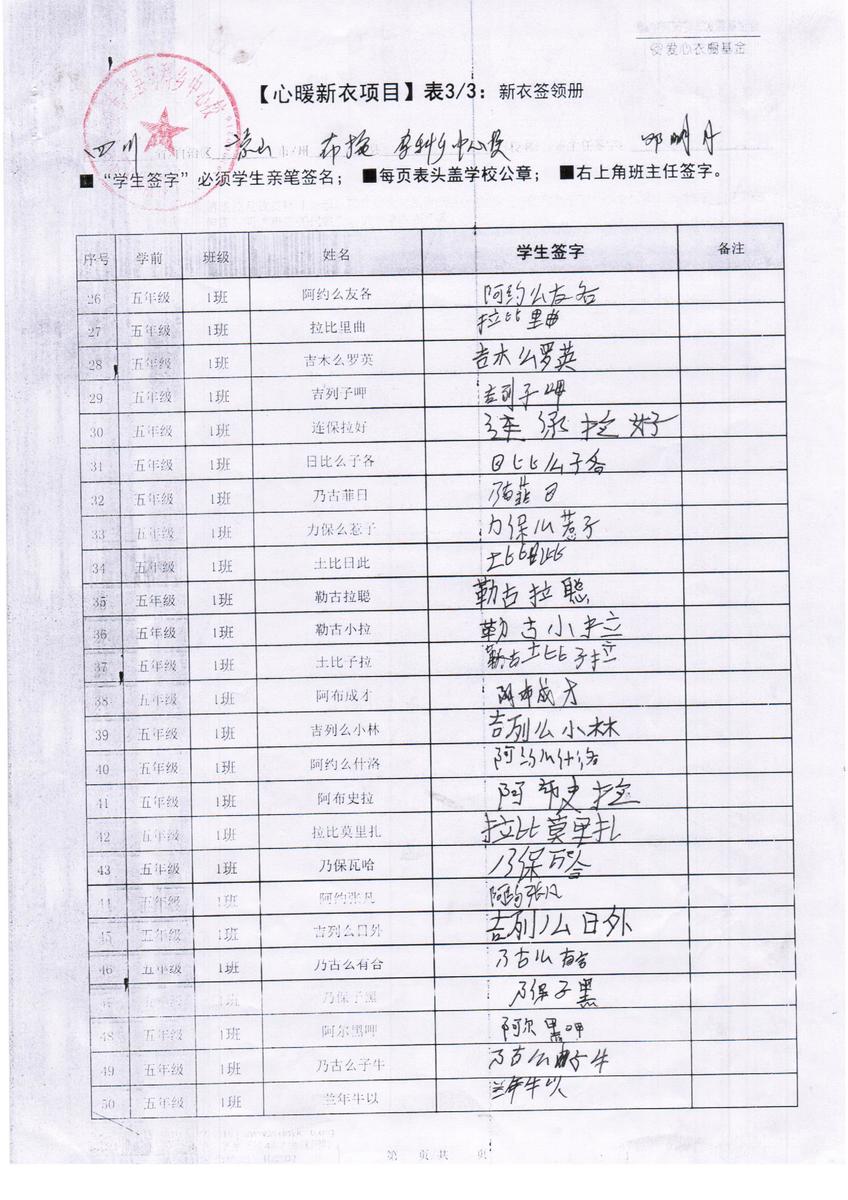 【心暖新衣项目】表3/3：新衣签领册
四川 凉山 布拖 乡中心校
■“学生签字”必须学生亲笔签名； ■每页表头盖学校公章； ■右上角班主任签字。
序号 学前 班级 姓名 学生签字 备注
26 五年级 1班 阿约么友各 阿约么友各
27 五年级 1班 拉比里曲 拉比里曲
28 五年级 1班 吉木么罗英 吉木么罗英
29 五年级 1班 吉列子呷 吉列子呷
30 五年级 1班 连保拉好 连保拉好
31 五年级 1班 日比么子各 日比么子各
32 五年级 1班 乃古菲日 乃古菲日
33 五年级 1班 力保么惹子 力保么惹子
34 五年级 1班 土比日此 土比日此
35 五年级 1班 勒古拉聪 勒古拉聪
36 五年级 1班 勒古小拉 勒古小拉
37 五年级 1班 土比子拉 勒古土比子拉
38 五年级 1班 阿布成才 阿布成才
39 五年级 1班 吉列么小林 吉列么小林
40 五年级 1班 阿约么什洛 阿约么什洛
41 五年级 1班 阿布史拉 阿布史拉
42 五年级 1班 拉比莫里扎 拉比莫里扎
43 五年级 1班 乃保瓦哈 乃保瓦哈
44 五年级 1班 阿约张凡 阿约张凡
45 五年级 1班 吉列么日外 吉列么日外
46 五年级 1班 乃古么有合 乃古么有合
47 五年级 1班 乃保子黑 乃保子黑
48 五年级 1班 阿尔黑呷 阿尔黑呷
49 五年级 1班 乃古么子牛 乃古么子牛
50 五年级 1班 兰年牛以 兰年牛以
第 页 共 页